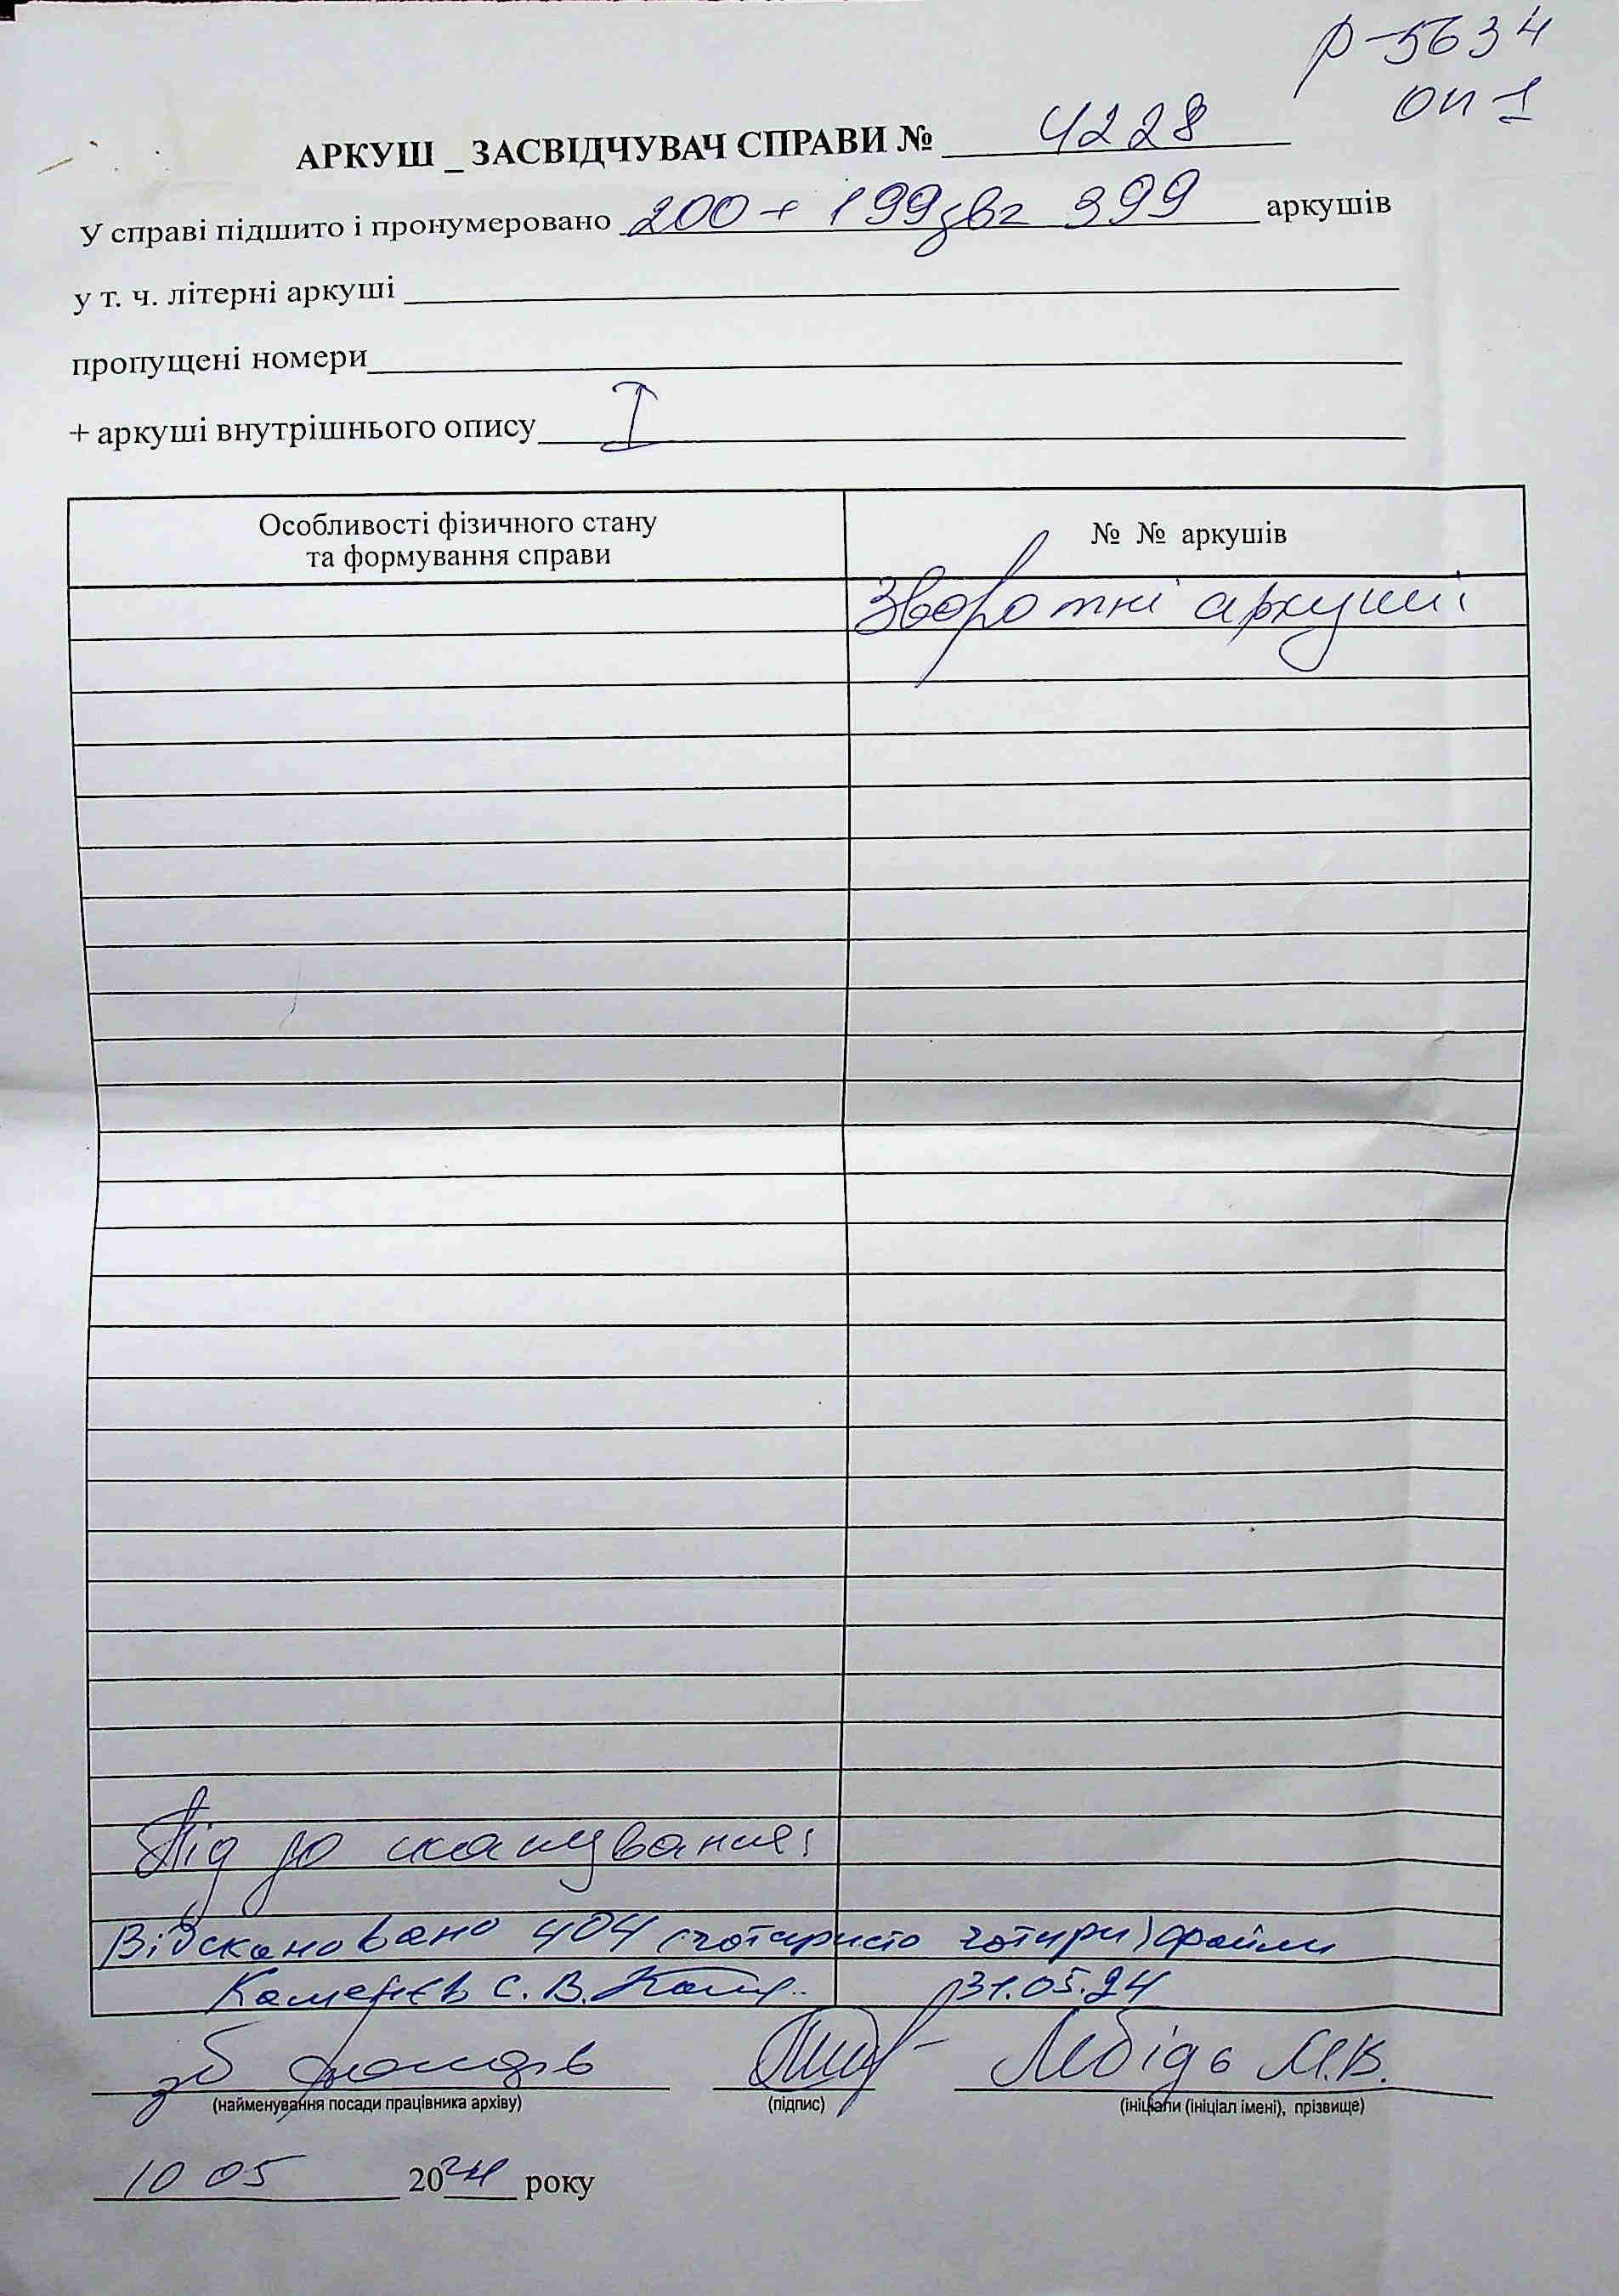 Р-5634
оп 1
АРКУШ _ ЗАСВІДЧУВАЧ СПРАВИ № 4228
У справі підшито і пронумеровано 200 + 199зв = 399 аркушів
у т. ч. літерні аркуші
пропущені номери
+ аркуші внутрішнього опису 1
Особливості фізичного стану та формування справи
№ № аркушів
Зворотні аркуші
до сканування:
Відскановано 404 (чотиристо чотири) файли
Каменєв С. В. 31.05.24
зб фондів Лебідь М.В.
(найменування посади працівника архіву) (підпис) (ініціали (ініціал імені), прізвище)
10 05 2024 року